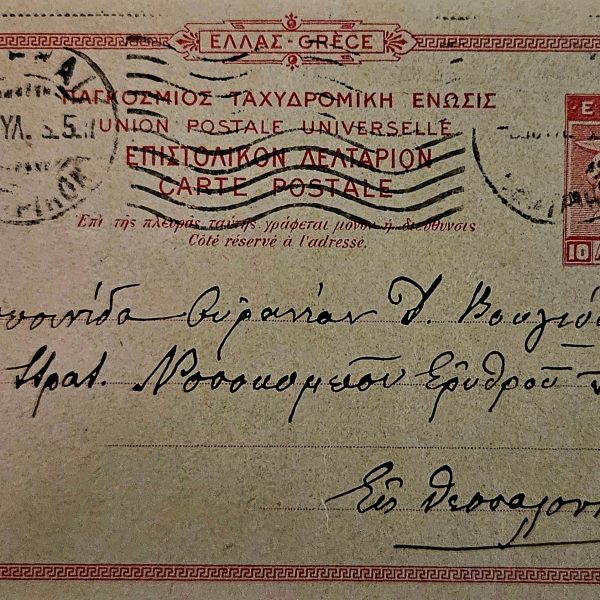 ΕΛΛΑΣ-GRÈCE
ΠΑΓΚΟΣΜΙΟΣ ΤΑΧΥΔΡΟΜΙΚΗ ΕΝΩΣΙΣ
UNION POSTALE UNIVERSELLE
ΕΠΙΣΤΟΛΙΚΟΝ ΔΕΛΤΑΡΙΟΝ
CARTE POSTALE
Ἐπὶ τῆς πλευρᾶς ταύτης γράφεται μόνον ἡ διεύθυνσις
Côté réservé à l'adresse.
10
Οὐρανίαν Δ.
Στρατ. Νοσοκομεῖον Ἐρυθροῦ
Εἰς Θεσσαλονι